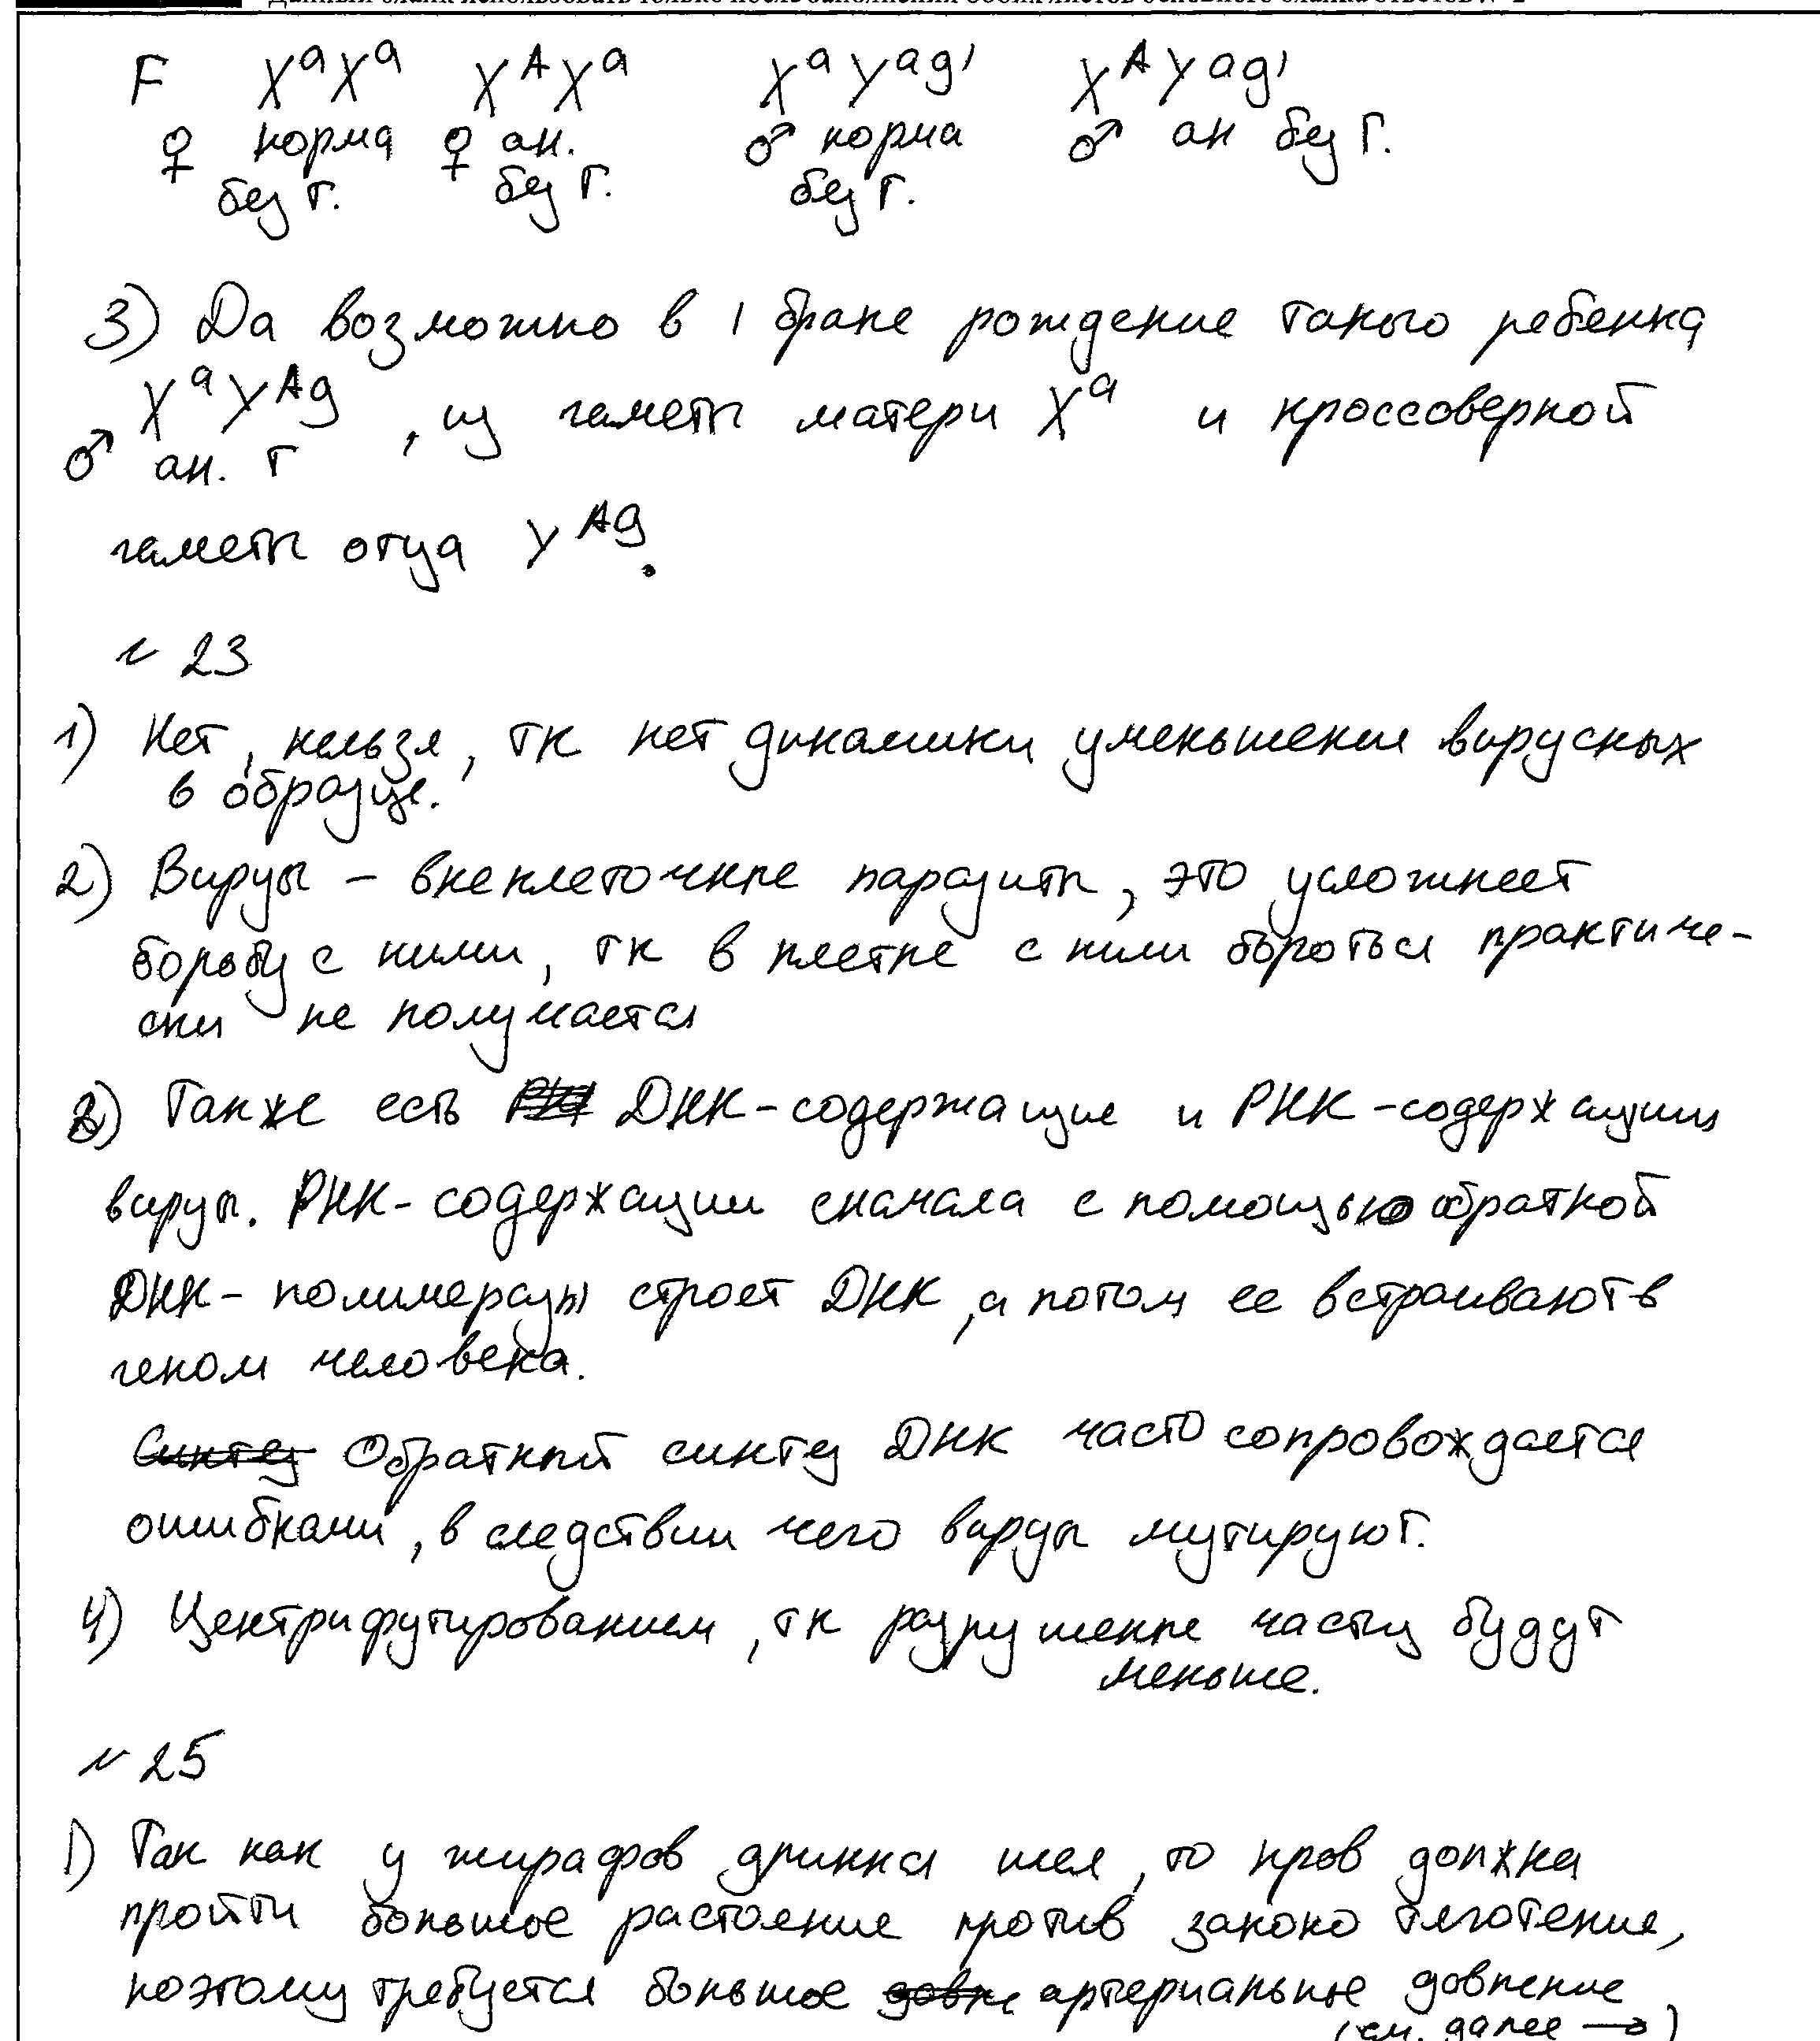 Данный бланк использовать только после заполнения обоих листов основного бланка ответов № 2
F XᵃXᵃ XᴬXᵃ Xᵃ Yᵃg' Xᴬ Yᵃg'
♀ норма ♀ ан. ♂ норма ♂ ан без г.
без г. без г. без г.
3) Да возможно в 1 браке рождение такого ребенка
♂ Xᵃ Yᴬg, из гаметы матери Xᵃ и кроссоверной
ан. г
гаметы отца Yᴬg.
№ 23
1) Нет, нельзя, тк нет динамики уменьшения вирусных
в образце.
2) Вирусы – внеклеточные паразиты, это усложняет
борьбу с ними, тк в клетке с ними бороться практиче-
ски не получается
3) Также есть ДНК-содержащие и РНК-содержащии
вирусы. РНК-содержащии сначала с помощью обратной
ДНК-полимеразы строет ДНК, а потом ее встраивают в
геном человека.
Синтез Обратный синтез ДНК часто сопровождается
ошибками, в следствии чего вирусы мутируют.
4) Центрифугированием, тк разрушенные частиц будут
меньше.
№ 25
1) Так как у жирафов длинная шея, то кров должна
пройти большое растояние против закона тяготение,
поэтому требуется большое давле артериальное давление
(см. далее →)